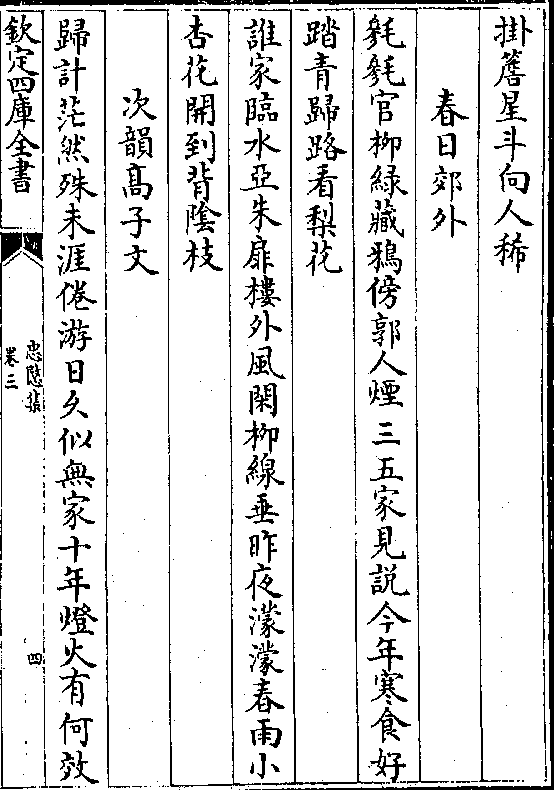 掛簷星斗向人稀
春日郊外
毿毿官柳緑藏鴉傍郭人煙三五家見説今年寒食好
踏青歸路看梨花
誰家臨水亞朱扉樓外風閑柳線垂昨夜濛濛春雨小
杏花開到背陰枝
次韻髙子文
歸計茫然殊未涯倦游日久似無家十年燈火有何效
欽定四庫全書
忠愍集
卷三
四